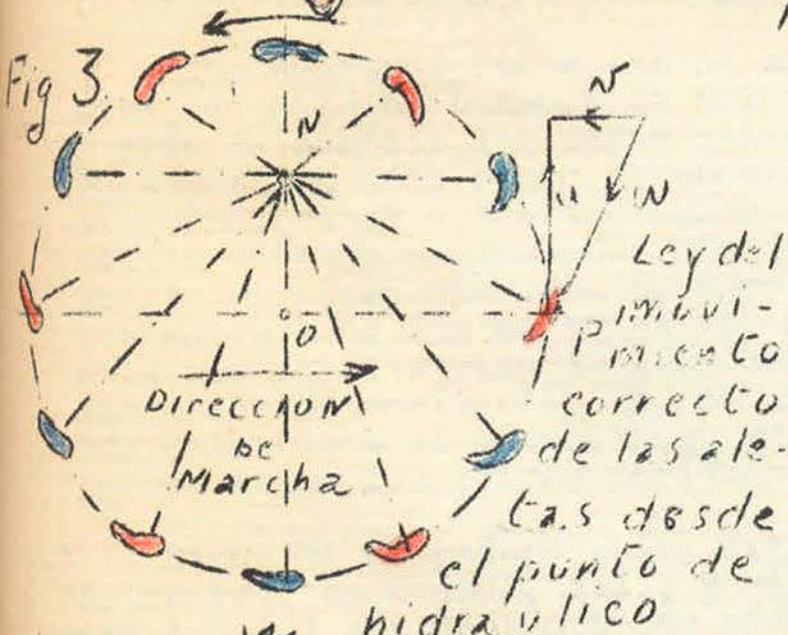 Fig 3.
N
v
u w
O
P
Direccion
De
Marcha
Ley del
movi-
miento
correcto
de las ale-
tas desde
el punto de
hidraulico